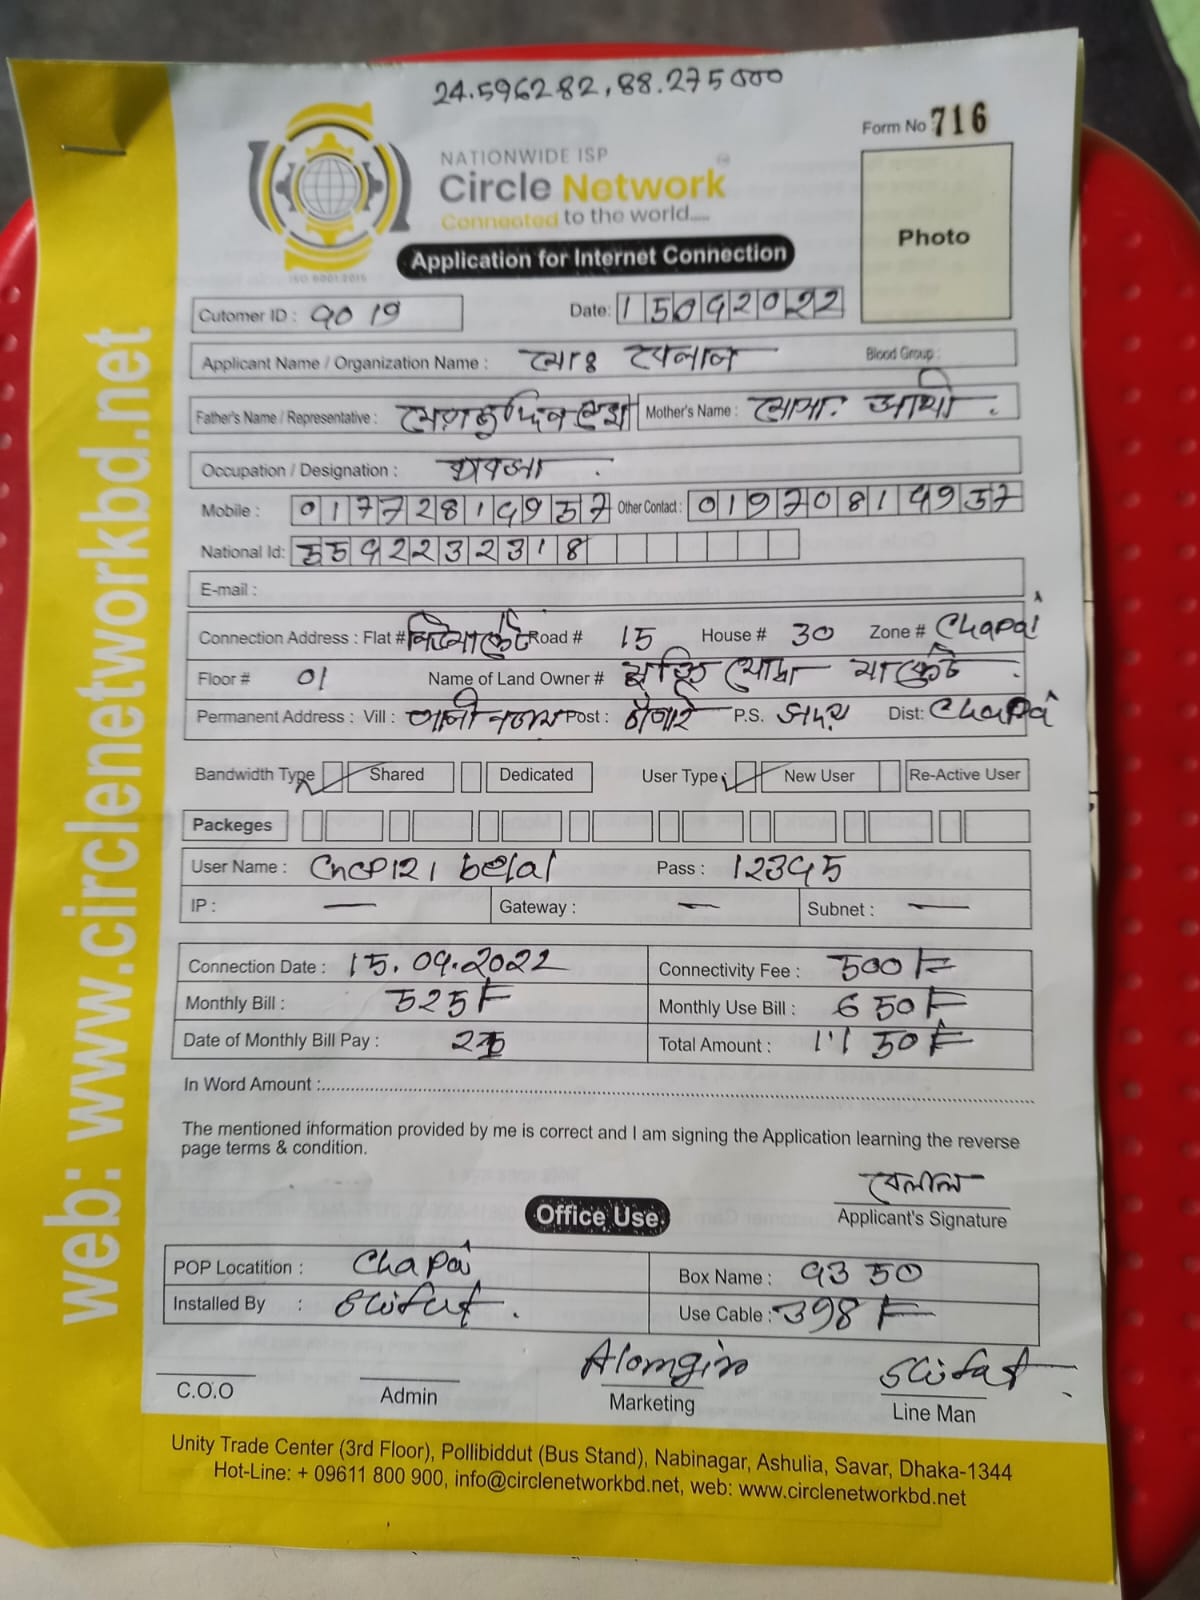 24.596282, 88.275000
Form No 716
NATIONWIDE ISP
Circle Network
Connected to the world.....
ISO 9001:2015
Photo
Application for Internet Connection
Cutomer ID : 9019 Date: 15092022
Applicant Name / Organization Name : মোঃ বেলাল Blood Group :
Father's Name / Representative : Mother's Name : মোসাঃ
Occupation / Designation : ব্যবসা
Mobile : 01772814937 Other Contact : 01970814937
National Id: 5592232318
E-mail :
Connection Address : Flat # Road # 15 House # 30 Zone # Chapai
Floor # 01 Name of Land Owner # মার্কেট
Permanent Address : Vill : Post : P.S. সদর Dist: Chapai
Bandwidth Type Shared Dedicated User Type New User Re-Active User
Packeges
User Name : Chcp121 belal Pass : 12345
IP : — Gateway : — Subnet : —
Connection Date : 15.09.2022 Connectivity Fee : 500
Monthly Bill : 525 Monthly Use Bill : 650
Date of Monthly Bill Pay : Total Amount : 1150
In Word Amount :
The mentioned information provided by me is correct and I am signing the Application learning the reverse
page terms & condition.
বেলাল
Applicant's Signature
Office Use.
POP Locatition : Chapai Box Name : 9350
Installed By : Sifat Use Cable : 398
Alomgir Sifat
C.O.O Admin Marketing Line Man
Unity Trade Center (3rd Floor), Pollibiddut (Bus Stand), Nabinagar, Ashulia, Savar, Dhaka-1344
Hot-Line: + 09611 800 900, info@circlenetworkbd.net, web: www.circlenetworkbd.net
web: www.circlenetworkbd.net